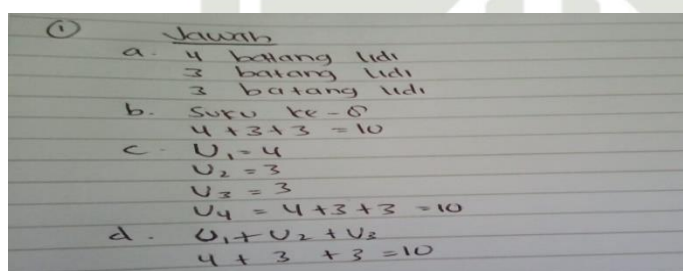 ① Jawab
a. 4 batang lidi
3 batang lidi
3 batang lidi
b. Suku ke-8
4 + 3 + 3 = 10
c. U₁ = 4
U₂ = 3
U₃ = 3
U₄ = 4 + 3 + 3 = 10
d. U₁ + U₂ + U₃
4 + 3 + 3 = 10